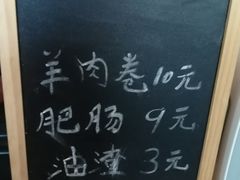 羊肉卷10元
肥肠 9元
油渣 3元